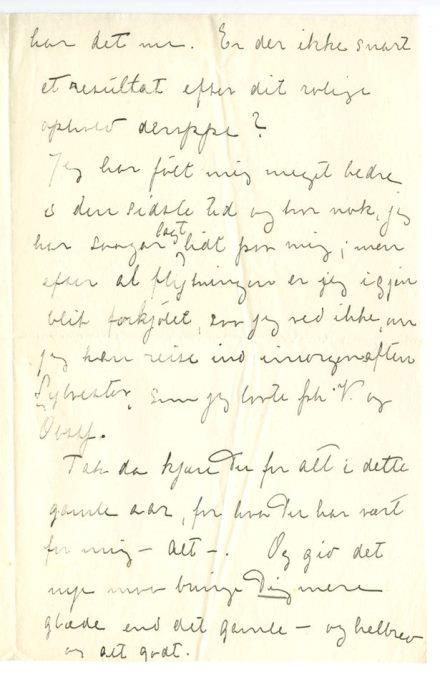 har det nu. Er der ikke snart
et resultat efter dit rolige
ophold deroppe?
Jeg har følt mig meget bedre
i den sidste tid og tror nok, jeg
har saagar lagt lidt paa mig; men
efter al flytningen er jeg igjen
blit forkjølet, saa jeg ved ikke, om
jeg kan reise ind imorgenaften
Sylvester, som jeg lovte frk. V. og
Takk da kjære Du for alt i dette
gamle aar, for hva Du har vært
for mig – alt –. Og gid det
nye maa bringe Dig mere
glæde end det gamle – og helbred
og alt godt.